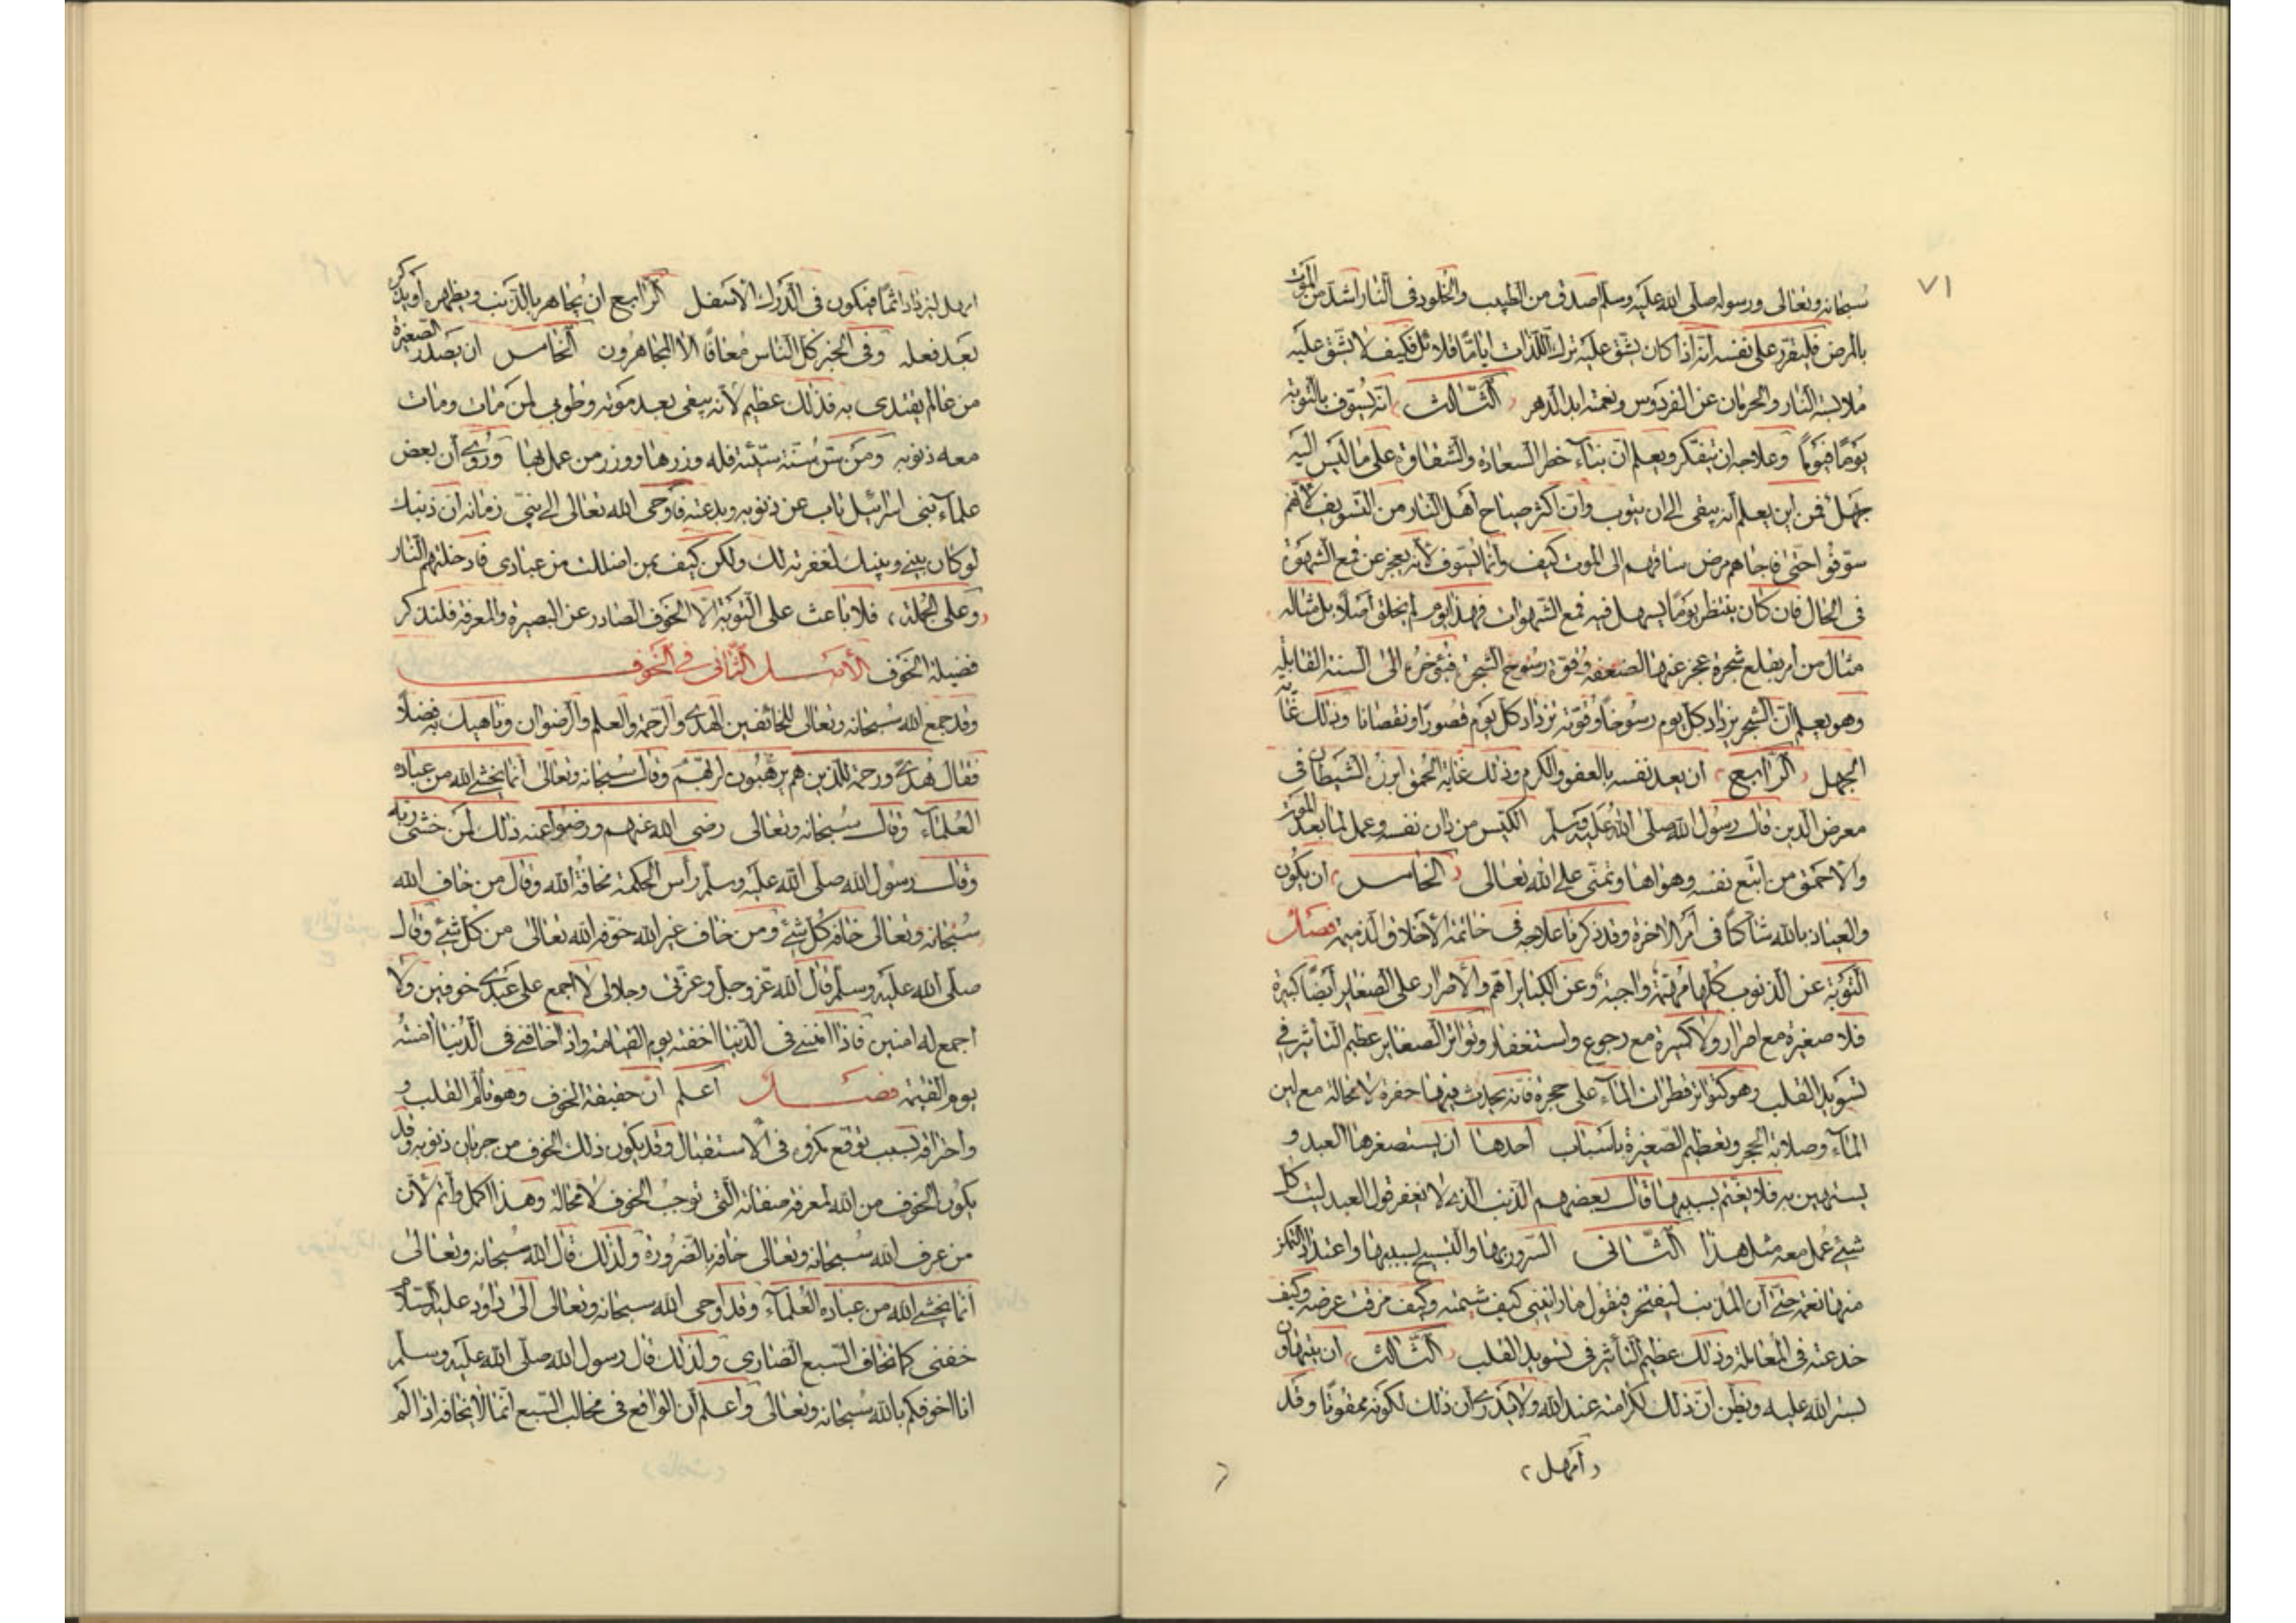 ٧١
سبحانه وتعالى ورسوله صلى الله عليه وسلم صدق من الطبيب والخلود فى النار اشد من الموت
بالمرض فليقرر على نفسه انه اذا كان يشق عليه ترك اللذات اياما قلائل فكيف لا يشق عليه
ملابسة النار والحرمان عن الفردوس ونعمته ابد الدهر الثالث انه يسوف بالتوبة
يوما فيوما وعلاجه ان يتفكر ويعلم ان بناء خطر السعادة والشقاوة على ما ليس اليه
جهل فمن اين يعلم انه يبقى الى ان يتوب وان اكثر صياح اهل النار من التسويف لانهم
سوفوا حتى فاجاهم مرض ساقهم الى الموت كيف وانما يسوف لانه يعجز عن قمع الشهوة
فى الحال فان كان ينتظر يوما يسهل فيه قمع الشهوات فهذا يوم لم يخلق اصلا بل مثاله
مثال من امر بقلع شجرة عجز عنها لضعفه وقوة رسوخ الشجرة فيؤخر الى السنة القابلة
وهو يعلم ان الشجر يزداد كل يوم رسوخا وقوته تزداد كل يوم قصورا ونقصانا وذلك غاية
الجهل الرابع ان يعد نفسه بالعفو والكرم وذلك غاية الحمق ابرزه الشيطان فى
معرض الدين قال رسول الله صلى الله عليه وسلم الكيس من دان نفسه وعمل لما بعد الموت
والاحمق من اتبع نفسه وهواها وتمنى على الله تعالى الخامس ان يكون
والعياذ بالله شاكا فى امر الاخرة وقد ذكرنا علاجه فى خاتمة الاخلاق الذميمة فصل
التوبة عن الذنوب كلها مهمة واجبة وعن الكبائر اهم والاصرار على الصغاير ايضا كبيرة
فلا صغيرة مع اصرار ولا كبيرة مع رجوع واستغفار وتواتر الصغاير عظيم التأثير فى
تسويد القلب وهو كتواتر قطرات الماء على حجرة فانه يحدث فيها حفرة لا محالة مع لين
الماء وصلابة الحجر وتعظيم الصغيرة باسباب احدها ان يستصغرها العبد و
يستهين به فلا يغتم بسببها قال بعضهم الذنب الذى لا يغفر قول العبد ليت كل
شئ عمل معه مثل هذا الثانى السرور بها والتبجح بسببها واعتداد التمكن
منها نعمة حتى ان المذنب ليفتخر فيقول ما رايتنى كيف شتمته وكيف مزقت عرضه وكيف
خدعته فى المعاملة وذلك عظيم التأثير فى تسويد القلب الثالث ان يتهاون
بستر الله عليه ويظن ان ذلك لكرامته عند الله ولا يدرى ان ذلك لكونه ممقوتا وقد
امهل
امهل ليزداد اثما فيكون فى الدرك الاسفل الرابع ان يجاهر بالذنب ويظهره او يذكره
بعد فعله وفى الخبر كل الناس معافا الا المجاهرون الخامس ان يصدر الصغيرة
من عالم يقتدى به فذلك عظيم لانه يبقى بعد موته وطوبى لمن مات ومات
معه ذنوبه ومن سن سنة سيئة فله وزرها ووزر من عمل بها وروى ان بعض
علماء بنى اسرائيل تاب عن ذنوبه وبدعته فاوحى الله تعالى الى نبى زمانه ان ذنبك
لو كان بينى وبينك لغفرته لك ولكن كيف بمن اضللت من عبادى فادخلتهم النار
وعلى الجملة فلا باعث على التوبة الا الخوف الصادر عن البصيرة والمعرفة فلنذكر
فضيلة الخوف الاصل الثانى فى الخوف
وقد جمع الله سبحانه وتعالى للخائفين الهدى والرحمة والعلم والرضوان وناهيك به فضلا
فقال هدى ورحمة للذين هم لربهم يرهبون وقال سبحانه وتعالى انما يخشى الله من عباده
العلماء وقال سبحانه وتعالى رضى الله عنهم ورضوا عنه ذلك لمن خشى ربه
وقال رسول الله صلى الله عليه وسلم رأس الحكمة مخافة الله وقال من خاف الله
سبحانه وتعالى خافه كل شئ ومن خاف غير الله خوفه الله تعالى من كل شئ وقال
صلى الله عليه وسلم قال الله عز وجل وعزتى وجلالى لا اجمع على عبدى خوفين ولا
اجمع له امنين فاذا امننى فى الدنيا اخفته يوم القيامة واذا خافنى فى الدنيا امنته
يوم القيمة فصل اعلم ان حقيقة الخوف وهو تألم القلب و
واحتراقه بسبب توقع مكروه فى الاستقبال وقد يكون ذلك الخوف من جريان ذنوبه وقد
يكون الخوف من الله لمعرفة صفاته التى توجب الخوف لا محالة وهذا اكمل واتم لان
من عرف الله سبحانه وتعالى خافه بالضرورة ولذلك قال الله سبحانه وتعالى
انما يخشى الله من عباده العلماء وقد اوحى الله سبحانه وتعالى الى داود عليه السلام
خفنى كما تخاف السبع الضارى ولذلك قال رسول الله صلى الله عليه وسلم
انا اخوفكم بالله سبحانه وتعالى واعلم ان الواقع فى مخالب السبع انما لا يخافه اذا لم